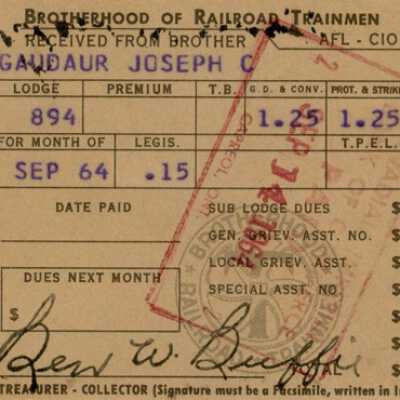 BROTHERHOOD OF RAILROAD TRAINMEN
RECEIVED FROM BROTHER AFL - CIO
GAUDAUR JOSEPH C
LODGE PREMIUM T.B. G.D. & CONV. PROT. & STRIKE
894 1.25 1.25
FOR MONTH OF LEGIS. T.P.E.L.
SEP 64 .15
DATE PAID SUB LODGE DUES $
GEN. GRIEV. ASST. NO. $
LOCAL GRIEV. ASST. $
DUES NEXT MONTH SPECIAL ASST. NO $
$ $
Ben W. Buffie
TOTAL $
TREASURER - COLLECTOR (Signature must be a Facsimile, written in
CAPREOL, ONT.
SEP 14 1964
BROTHERHOOD